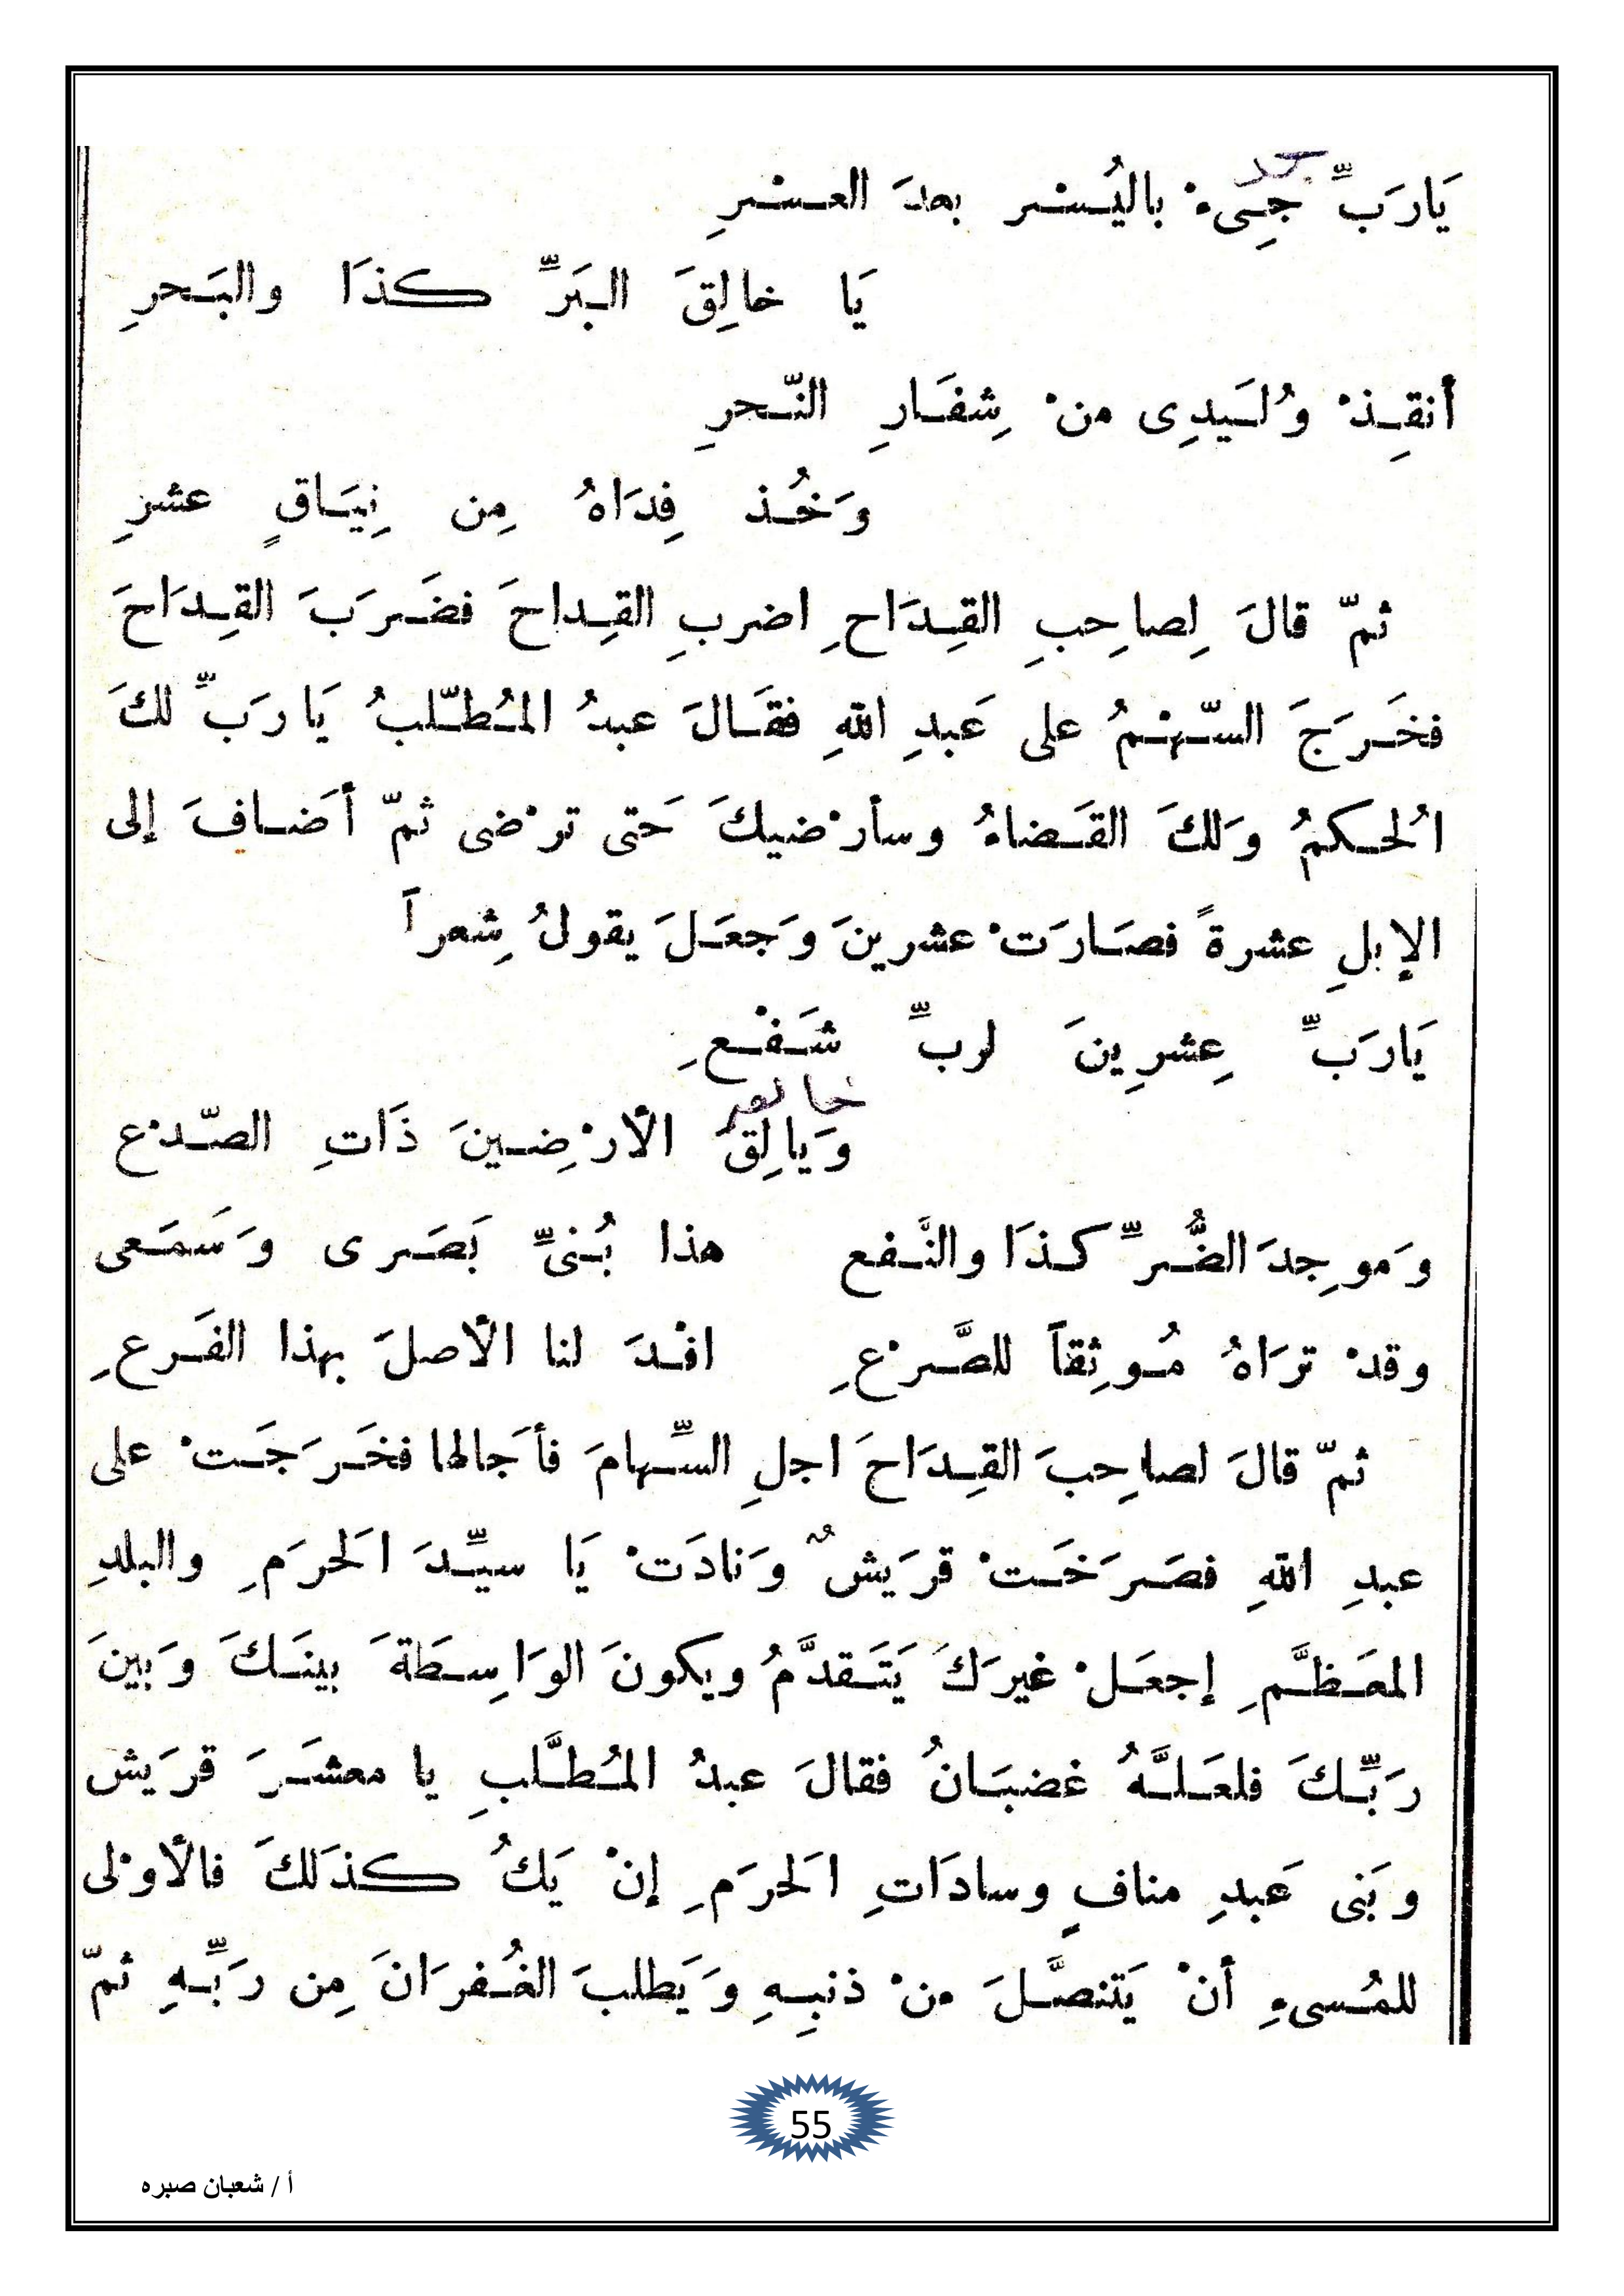 يَارَبِّ جِيءْ بالْيُسْرِ بعدَ العسْرِ
يَا خالِقَ البَرِّ كذَا والبَحرِ
أنقِذْ وُلَيدِى منْ شِفَارِ النّحرِ
وَخُذ فِدَاهُ مِن نِيَاقٍ عشرِ
ثمّ قالَ لِصاحِبِ القِدَاحِ اضربِ القِداحَ فضَرَبَ القِدَاحَ
فخَرَجَ السّهْمُ على عَبدِ اللهِ فقَالَ عبدُ المُطّلبُ يَا رَبِّ لكَ
الحُكمُ وَلكَ القَضاءُ وسأرْضيكَ حَتى ترْضى ثمّ أضَافَ إلى
الإبلِ عشرةً فصَارَتْ عشرينَ وَجعَلَ يقولُ شِعراً
يَارَبِّ عِشرِينَ لربِّ شَفْعِ
خالق
وَيالِقُ الأرْضِينَ ذَاتِ الصّدْع
وَموجِدَ الضُّرِّ كذَا والنَّفع هذا بُنىِّ بَصَرى وَسَمَعى
وقدْ ترَاهُ مُوثِقاً للصَّرْعِ افْدَ لنا الأصلَ بهذا الفَرعِ
ثمّ قالَ لصاحِبَ القِدَاحَ اجلِ السِّهامَ فأجَالها فخَرَجَتْ على
عبدِ اللهِ فصَرَخَتْ قرَيشٌ وَنادَتْ يَا سيِّدَ الحَرَمِ والبلدِ
المعَظَّمِ إجعَلْ غيرَكَ يَتَقدَّمُ ويكونَ الوَاسِطَةَ بينَكَ وَبينَ
رَبِّكَ فلعَلَّهُ غضبَانُ فقالَ عبدُ المُطَّلبِ يا معشَرَ قرَيش
وبَنى عَبدِ منافٍ وسادَاتِ الحَرَمِ إنْ يَكُ كذَلكَ فالأوْلى
للمُسىءِ أنْ يَتنصَّلَ منْ ذنبِهِ وَيَطلبَ الغُفرَانَ مِن رَبِّهِ ثمّ
55
أ / شعبان صبره